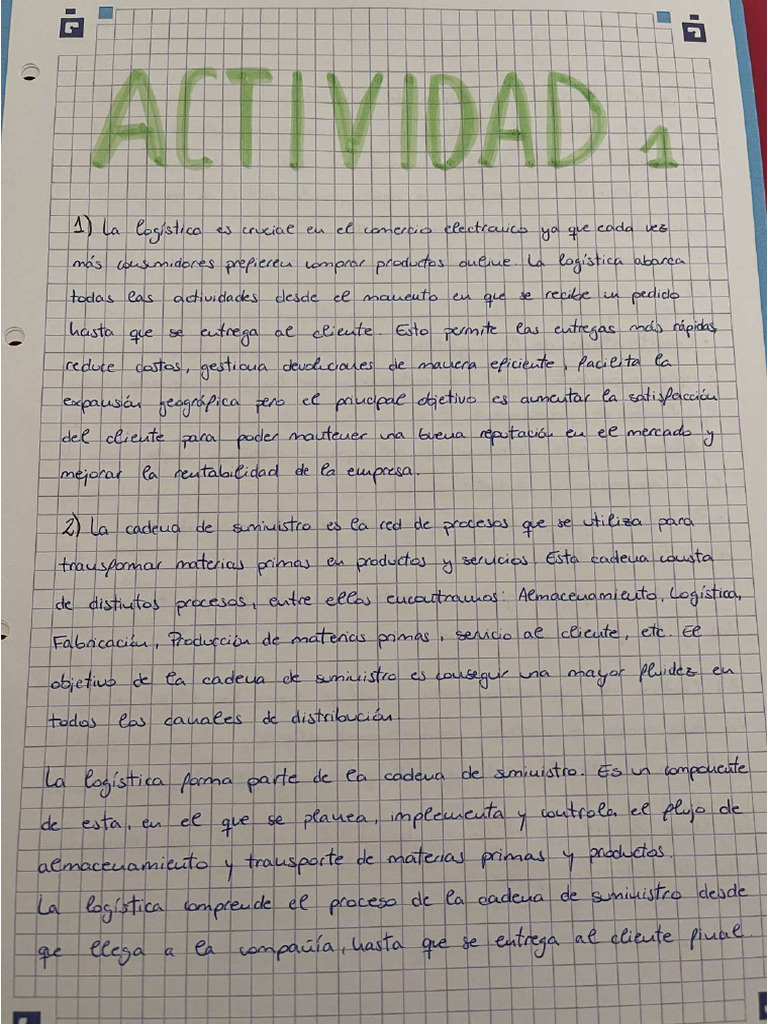 ACTIVIDAD 1
1) La logística es crucial en el comercio electronico ya que cada vez
más consumidores prefieren comprar productos online. La logística abarca
todas las actividades desde el momento en que se recibe un pedido
hasta que se entrega al cliente. Esto permite las entregas más rápidas,
reduce costos, gestiona devoluciones de manera eficiente, facilita la
expansión geográfica pero el principal objetivo es aumentar la satisfacción
del cliente para poder mantener una buena reputación en el mercado y
mejorar la rentabilidad de la empresa.
2) La cadena de suministro es la red de procesos que se utiliza para
transformar materias primas en productos y servicios. Esta cadena consta
de distintos procesos, entre ellos encontramos: Almacenamiento, Logística,
Fabricación, Producción de materias primas, servicio al cliente, etc. El
objetivo de la cadena de suministro es conseguir una mayor fluidez en
todos los canales de distribución
La logística forma parte de la cadena de suministro. Es un componente
de esta, en el que se planea, implementa y controla el flujo de
almacenamiento y transporte de materias primas y productos.
La logística comprende el proceso de la cadena de suministro desde
qe llega a la compañía, hasta que se entrega al cliente final.